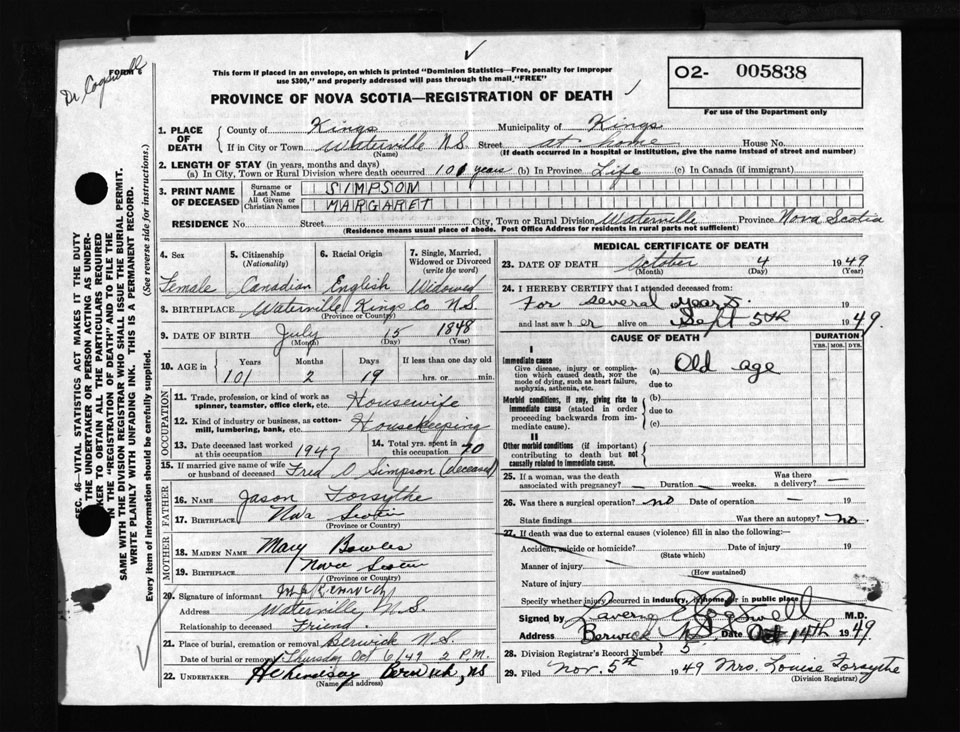 Dr Cogswell
FORM 6
This form if placed in an envelope, on which is printed "Dominion Statistics—Free, penalty for improper
use $300," and properly addressed will pass through the mail "FREE"
PROVINCE OF NOVA SCOTIA—REGISTRATION OF DEATH
O2- 005838
For use of the Department only
1. PLACE OF DEATH
County of Kings Municipality of Kings
If in City or Town Waterville N.S. Street at home House No.
(Name) (If death occurred in a hospital or institution, give the name instead of street and number)
2. LENGTH OF STAY (in years, months and days)
(a) In City, Town or Rural Division where death occurred 101 years (b) In Province Life (c) In Canada (if immigrant)
3. PRINT NAME OF DECEASED
Surname or Last Name SIMPSON
All Given or Christian Names MARGARET
RESIDENCE No. Street City, Town or Rural Division Waterville Province Nova Scotia
(Residence means usual place of abode. Post Office Address for residents in rural parts not sufficient)
4. Sex Female
5. Citizenship (Nationality) Canadian
6. Racial Origin English
7. Single, Married, Widowed or Divorced (write the word) Widowed
8. BIRTHPLACE Waterville Kings Co N.S.
(Province or Country)
9. DATE OF BIRTH July 15 1848
(Month) (Day) (Year)
10. AGE in Years Months Days If less than one day old
101 2 19 hrs. or min.
OCCUPATION
11. Trade, profession, or kind of work as
spinner, teamster, office clerk, etc. Housewife
12. Kind of industry or business, as cotton-
mill, lumbering, bank, etc. Housekeeping
13. Date deceased last worked
at this occupation 1947
14. Total yrs. spent in
this occupation 70
15. If married give name of wife
or husband of deceased Fred O Simpson (deceased)
FATHER
16. NAME Jason Forsythe
17. BIRTHPLACE Nova Scotia
(Province or Country)
MOTHER
18. MAIDEN NAME Mary Bowles
19. BIRTHPLACE Nova Scotia
(Province or Country)
20. Signature of informant
Address Waterville, N.S.
Relationship to deceased Friend.
21. Place of burial, cremation or removal Berwick N.S.
Date of burial or removal Thursday Oct 6/49 2 P.M.
22. UNDERTAKER Berwick, NS
(Name and address)
MEDICAL CERTIFICATE OF DEATH
23. DATE OF DEATH October 4 1949
(Month) (Day) (Year)
24. I HEREBY CERTIFY that I attended deceased from:
For several years. 19
and last saw her alive on Sept 5th 1949.
CAUSE OF DEATH
DURATION
YRS. MOS. DYS.
I
Immediate cause
Give disease, injury or complica-
tion which caused death, NOT the
mode of dying, such as heart failure,
asphyxia, asthenia, etc.
(a) Old age
due to
Morbid conditions, if any, giving rise to
immediate cause (stated in order
proceeding backwards from im-
mediate cause).
(b)
due to
(c)
II
Other morbid conditions (if important)
contributing to death but not
causally related to immediate cause.
25. If a woman, was the death
associated with pregnancy? — Duration — weeks. Was there a delivery? —
26. Was there a surgical operation? no Date of operation — 19
State findings Was there an autopsy? no.
27. If death was due to external causes (violence) fill in also the following:
Accident, suicide or homicide? Date of injury 19
(State which)
Manner of injury
(How sustained)
Nature of injury
Specify whether injury occurred in industry, in home, or in public place
Signed by Cogswell M.D.
Address Berwick NS Date Oct 14th 1949.
28. Division Registrar's Record Number 5
29. Filed Nov. 5th 1949 Mrs. Louise Forsythe
(Division Registrar)
SEC. 46—VITAL STATISTICS ACT MAKES IT THE DUTY
OF THE UNDERTAKER OR PERSON ACTING AS UNDER-
TAKER TO OBTAIN ALL THE PARTICULARS REQUIRED
IN THE "REGISTRATION OF DEATH" AND TO FILE THE
SAME WITH THE DIVISION REGISTRAR WHO SHALL ISSUE THE BURIAL PERMIT.
WRITE PLAINLY WITH UNFADING INK. THIS IS A PERMANENT RECORD.
Every item of information should be carefully supplied. (See reverse side for instructions.)